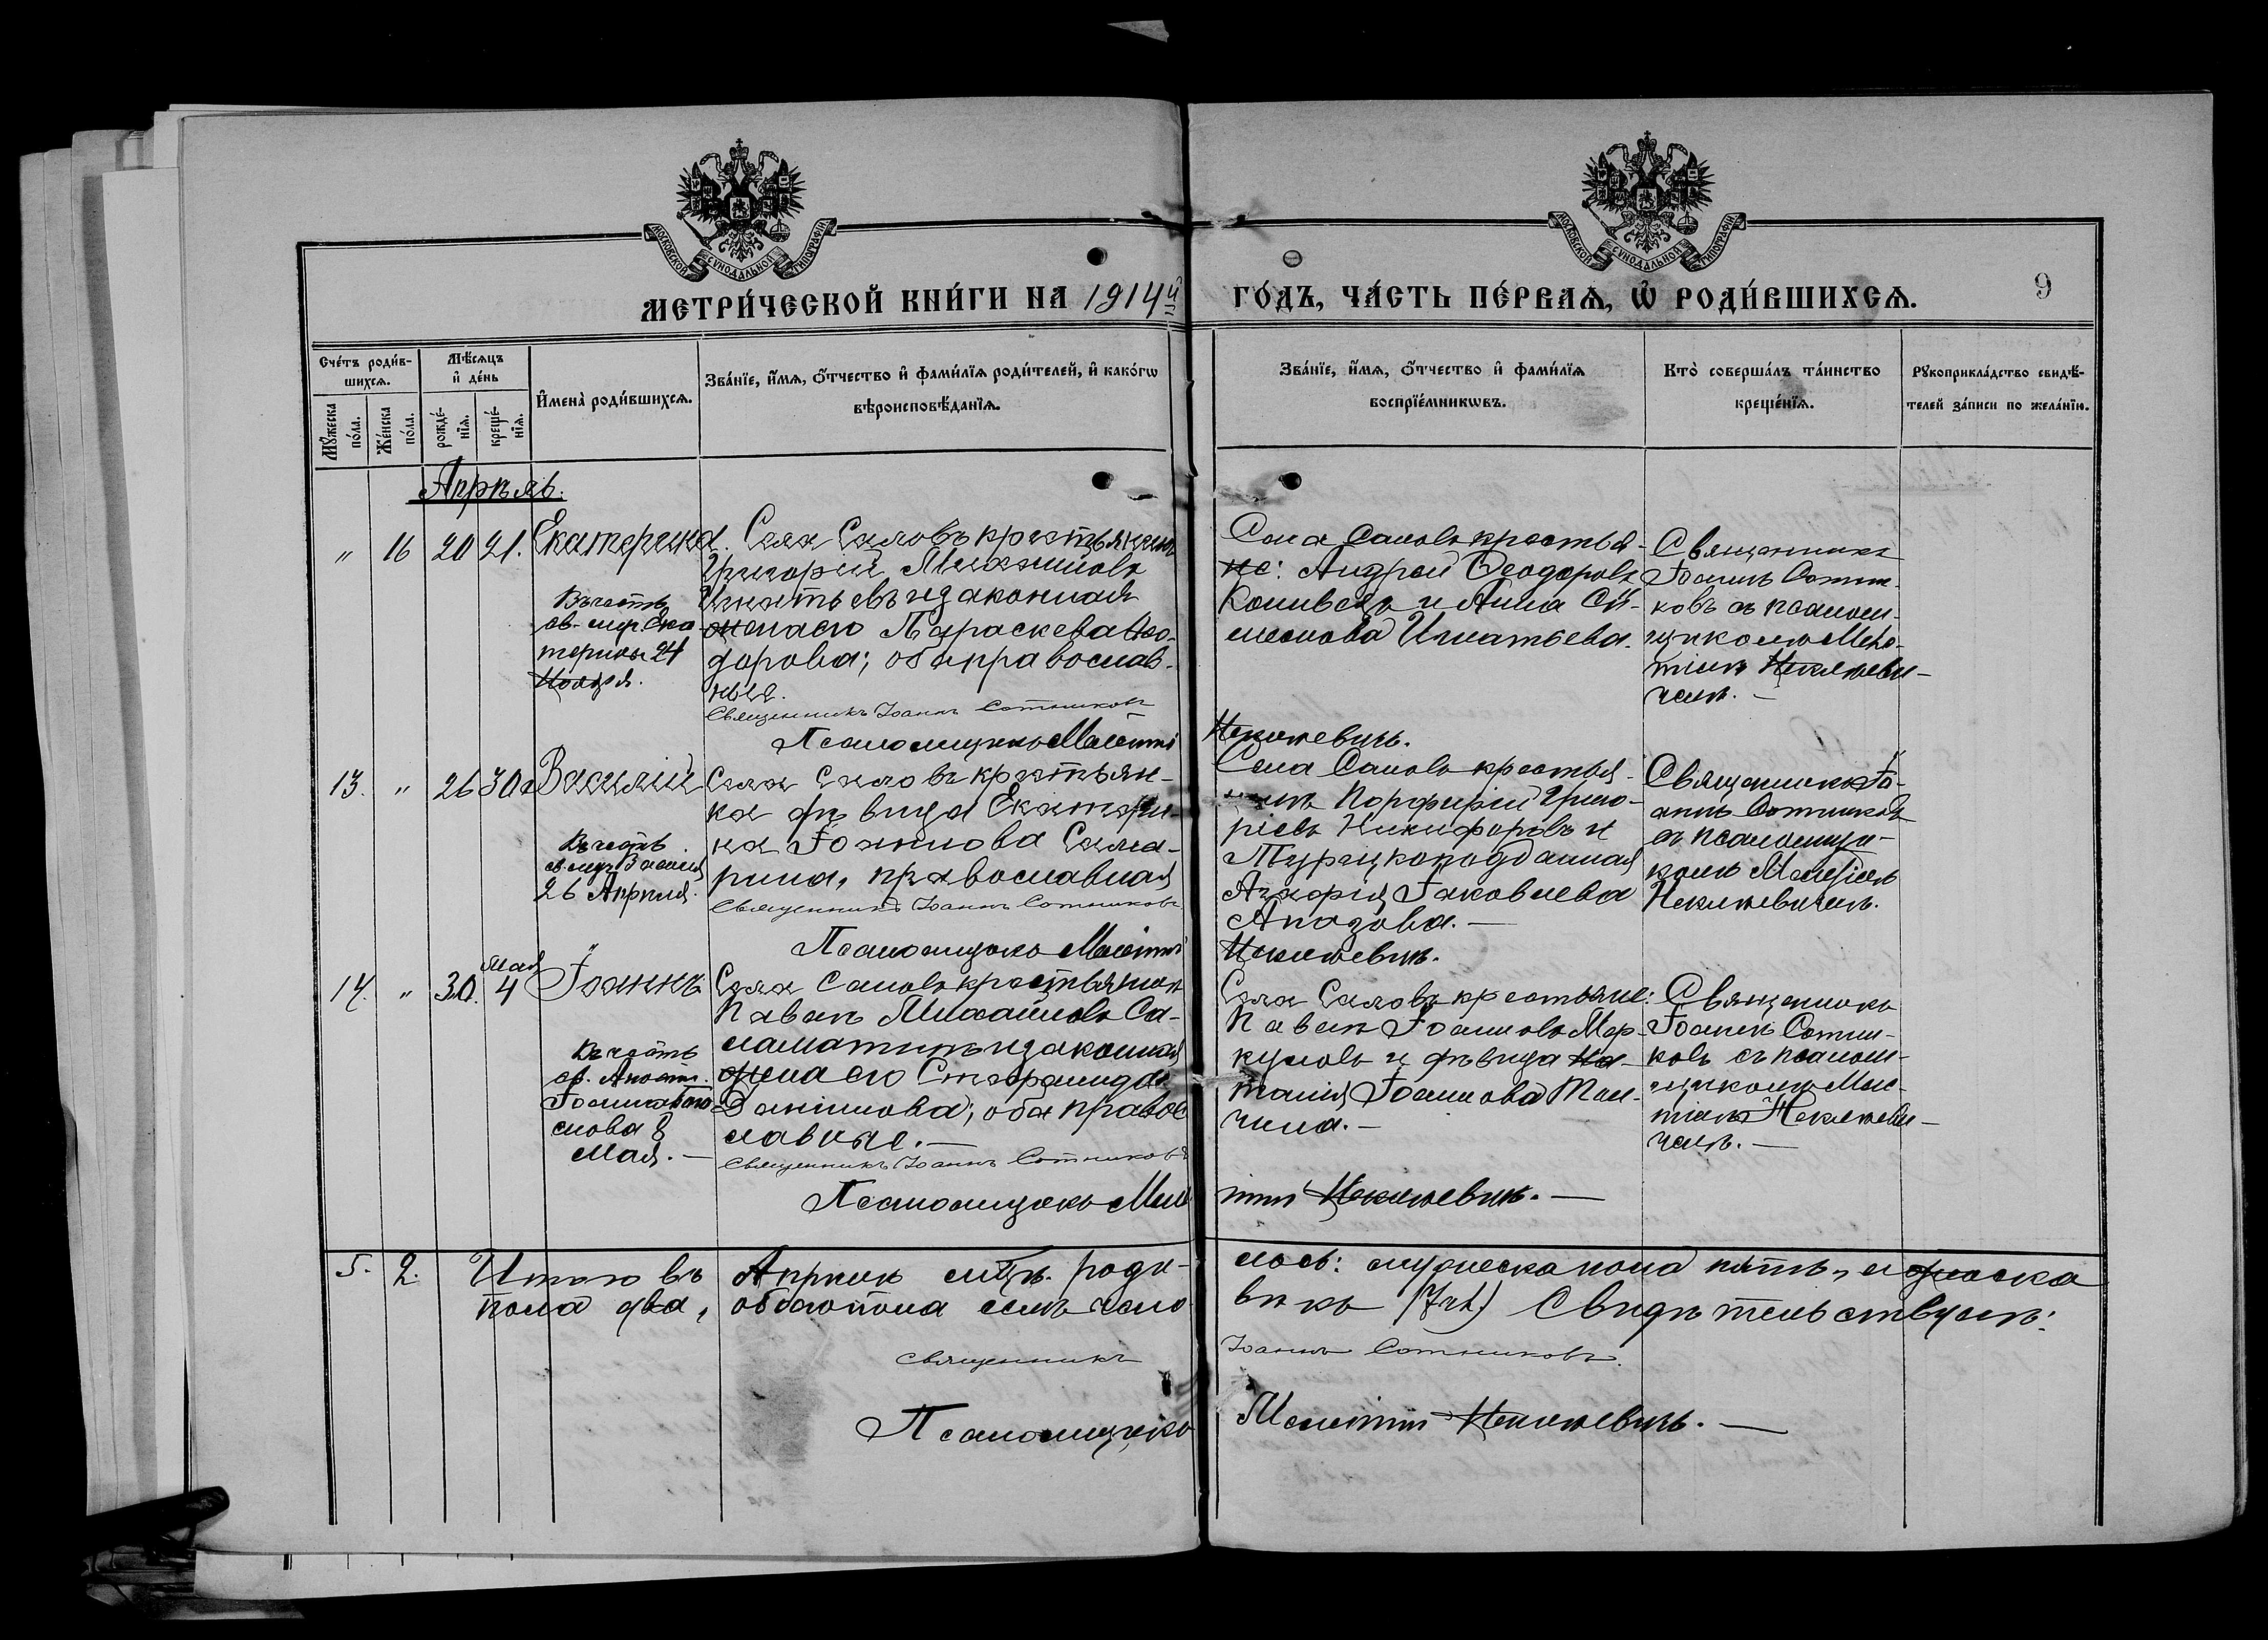 МОСКОВСКОЙ СѴНОДАЛЬНОЙ ТИПОГРАФІИ
МОСКОВСКОЙ СѴНОДАЛЬНОЙ ТИПОГРАФІИ
МЕТРИ́ЧЕСКОЙ КНИ́ГИ НА 1914й ГО́ДЪ, ЧА́СТЬ ПЕ́РВАѦ, Ѡ҆ РОДИ́ВШИХСѦ.
9
Сче́тъ роди́в-
шихсѧ.
Мѣ́сѧцъ
и҆ де́нь
Мꙋ́жеска
по́ла.
Же́нска
по́ла.
рожде́-
нїѧ.
креще́-
нїѧ.
И҆мена̀ роди́вшихсѧ.
Зва́нїе, и҆́мѧ, ѻ҆́тчество и҆ фами́лїѧ роди́телей, и҆ како́гѡ
вѣроисповѣ́данїѧ.
Зва́нїе, и҆́мѧ, ѻ҆́тчество и҆ фами́лїѧ
воспрїе́мникѡвъ.
Кто̀ соверша́лъ та́инство
креще́нїѧ.
Рꙋкоприкла́дство свидѣ́-
телей за́писи по жела́нїю.
Апрѣль.
" 16 20 21. Екатерина.
Въ честь
св. муч. Ека-
терины 24
Ноября.
Села Саловъ крестьянинъ
Григорій
Игнатьевъ и законная
жена его Параскева Ѳео-
дорова; оба православ-
ные.
Священникъ Іоаннъ Сотниковъ
Псаломщикъ Мелетій
Села Саловъ крестья-
не: Андрей Ѳеодоровъ
и Анна Си-
меонова Игнатьева.
Священникъ
Іоаннъ Сотни-
ковъ съ псалом-
щикомъ Меле-
тіемъ
чемъ. —
13. " 26 30го Василій
Въ честь
св. муч. Василія
26 Апрѣля.
Села Саловъ крестьян-
ка дѣвица Екатери-
на Іоаннова Сама-
рина, православная
Священникъ Іоаннъ Сотниковъ
Псаломщикъ Мелетій
Села Саловъ крестья-
нинъ Порфирій Григо-
рьевъ Никифоровъ и
Турецкоподданная
Агафія Іаковлева
Апазова. —
Священникъ Іо-
аннъ Сотниковъ
съ псаломщи-
комъ Мелетіемъ
14. " 30. Мая 4 Іоаннъ
Въ честь
св. Апост.
Іоанна Бого-
слова 8
Мая. —
Села Саловъ крестьянинъ
Павелъ Михайловъ Са-
ламатинъ и законная
жена его Стефанида
Даніилова; оба правос
лавные. —
Священникъ Іоаннъ Сотниковъ
Псаломщикъ Меле
тій
Села Саловъ крестьяне:
Павелъ Іоанновъ Мер-
куловъ и дѣвица На-
талія Іоаннова
чина. —
Священникъ
Іоаннъ Сотни-
ковъ съ псалом-
щикомъ Меле-
тіемъ
чемъ. —
5. 2. Итого въ Апрѣлѣ мцѣ. роди- лось: мужеска пола пять, женска
пола два, обоего пола семь чело- вѣкъ (7ч.) Свидѣтельствуемъ:
Священникъ Іоаннъ Сотниковъ.
Псаломщикъ Мелетій